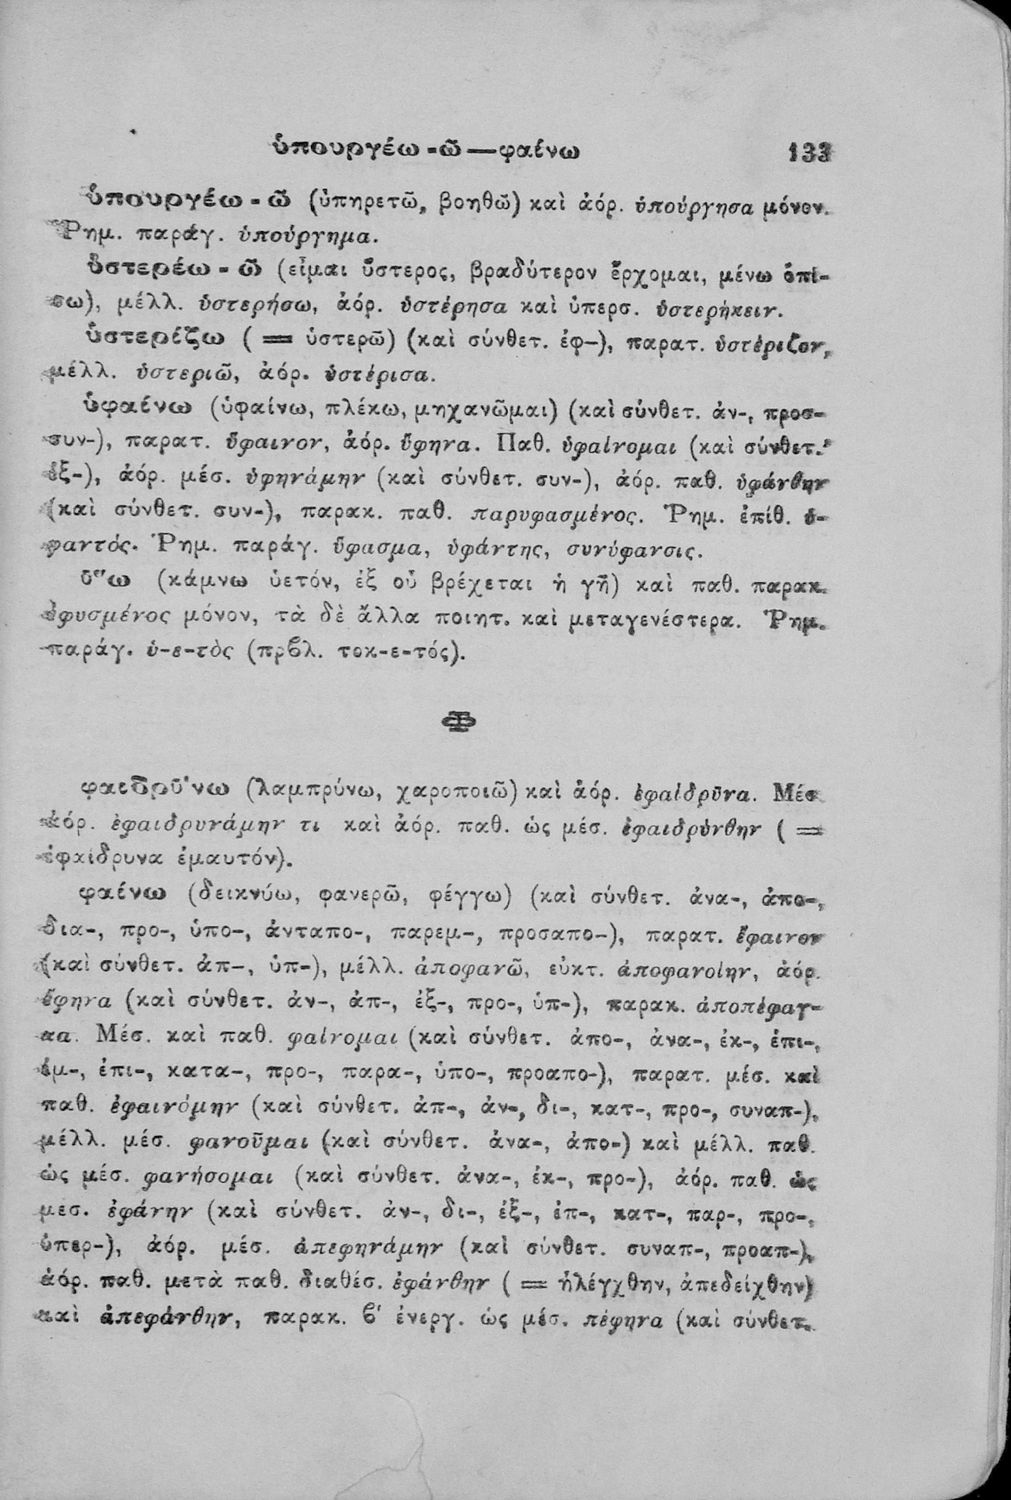 ὑπουργέω-ῶ—φαίνω 133
ὑπουργέω-ῶ (ὑπηρετῶ, βοηθῶ) καὶ ἀόρ. ὑπούργησα μόνον.
Ῥημ. παράγ. ὑπούργημα.
ὑστερέω-ῶ (εἶμαι ὕστερος, βραδύτερον ἔρχομαι, μένω ὀπί-
σω), μέλλ. ὑστερήσω, ἀόρ. ὑστέρησα καὶ ὑπερσ. ὑστερήκειν.
ὑστερίζω (= ὑστερῶ) (καὶ σύνθετ. ἐφ-), παρατ. ὑστέριζον,
μέλλ. ὑστεριῶ, ἀόρ. ὑστέρισα.
ὑφαίνω (ὑφαίνω, πλέκω, μηχανῶμαι) (καὶ σύνθετ. ἀν-, προσ-
συν-), παρατ. ὕφαινον, ἀόρ. ὕφηνα. Παθ. ὑφαίνομαι (καὶ σύνθετ.
ἐξ-), ἀόρ. μέσ. ὑφηνάμην (καὶ σύνθετ. συν-), ἀόρ. παθ. ὑφάνθην
(καὶ σύνθετ. συν-), παρακ. παθ. παρυφασμένος. Ῥημ. ἐπίθ. ὑ-
φαντός. Ῥημ. παράγ. ὕφασμα, ὑφάντης, συνύφανσις.
ὕω (κάμνω ὑετόν, ἐξ οὗ βρέχεται ἡ γῆ) καὶ παθ. παρακ.
ἐφυσμένος μόνον, τὰ δὲ ἄλλα ποιητ. καὶ μεταγενέστερα. Ῥημ.
παράγ. ὑ-ε-τὸς (πρβλ. τοκ-ε-τός).
Φ
φαιδρύνω (λαμπρύνω, χαροποιῶ) καὶ ἀόρ. ἐφαίδρῡνα. Μέσ.
ἀόρ. ἐφαιδρυνάμην τι καὶ ἀόρ. παθ. ὡς μέσ. ἐφαιδρύνθην (=
ἐφαίδρυνα ἐμαυτόν).
φαίνω (δεικνύω, φανερῶ, φέγγω) (καὶ σύνθετ. ἀνα-, ἀπο-,
δια-, προ-, ὑπο-, ἀνταπο-, παρεμ-, προσαπο-), παρατ. ἔφαινον
(καὶ σύνθετ. ἀπ-, ὑπ-), μέλλ. ἀποφανῶ, εὐκτ. ἀποφανοίην, ἀόρ.
ἔφηνα (καὶ σύνθετ. ἀν-, ἀπ-, ἐξ-, προ-, ὑπ-), παρακ. ἀποπέφαγ-
κα. Μέσ. καὶ παθ. φαίνομαι (καὶ σύνθετ. ἀπο-, ἀνα-, ἐκ-, ἐπι-,
ἐμ-, ἐπι-, κατα-, προ-, παρα-, ὑπο-, προαπο-), παρατ. μέσ. καὶ
παθ. ἐφαινόμην (καὶ σύνθετ. ἀπ-, ἀν-, δι-, κατ-, προ-, συναπ-),
μέλλ. μέσ. φανοῦμαι (καὶ σύνθετ. ἀνα-, ἀπο-) καὶ μέλλ. παθ.
ὡς μέσ. φανήσομαι (καὶ σύνθετ. ἀνα-, ἐκ-, προ-), ἀόρ. παθ. ὡς
μεσ. ἐφάνην (καὶ σύνθετ. ἀν-, δι-, ἐξ-, ἐπ-, κατ-, παρ-, προ-,
ὑπερ-), ἀόρ. μέσ. ἀπεφηνάμην (καὶ σύνθετ. συναπ-, προαπ-),
ἀόρ. παθ. μετὰ παθ. διαθέσ. ἐφάνθην (= ἠλέγχθην, ἀπεδείχθην)
καὶ ἀπεφάνθην, παρακ. β′ ἐνεργ. ὡς μέσ. πέφηνα (καὶ σύνθετ.